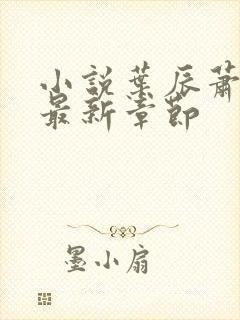 小說葉辰蕭
最新章節
墨小扇